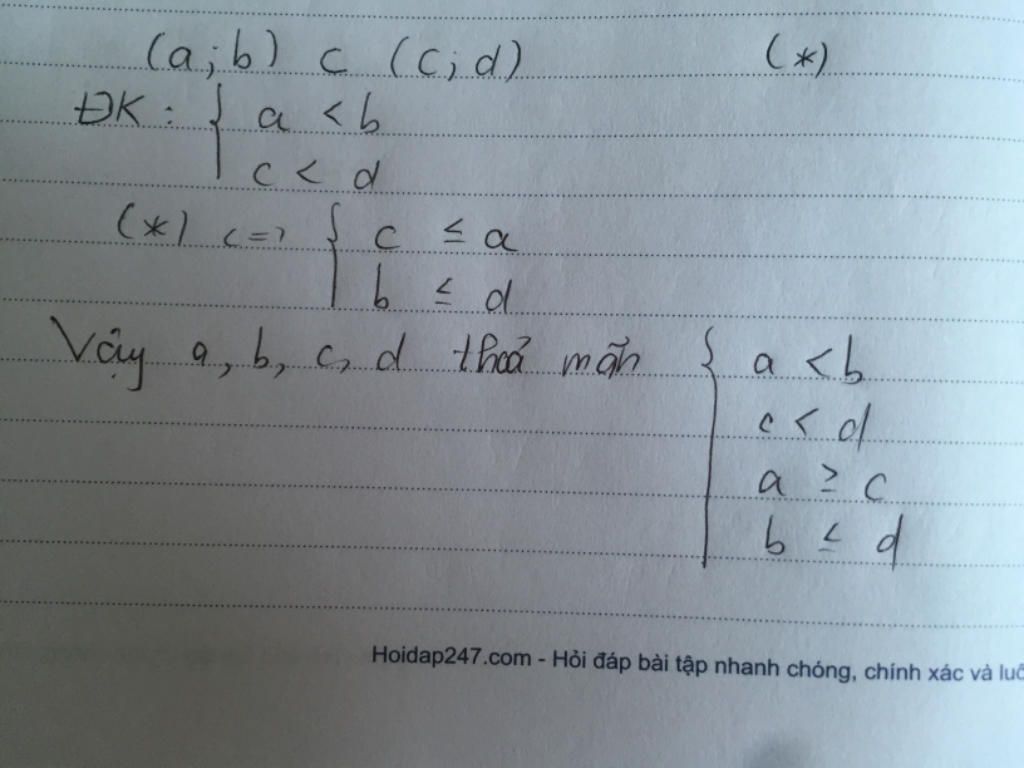 (a; b) ⊂ (c; d) (*)
ĐK: { a < b
c < d
(*) <=> { c ≤ a
b ≤ d
Vậy a, b, c, d thoả mãn { a < b
c < d
a ≥ c
b ≤ d
Hoidap247.com - Hỏi đáp bài tập nhanh chóng, chính xác và